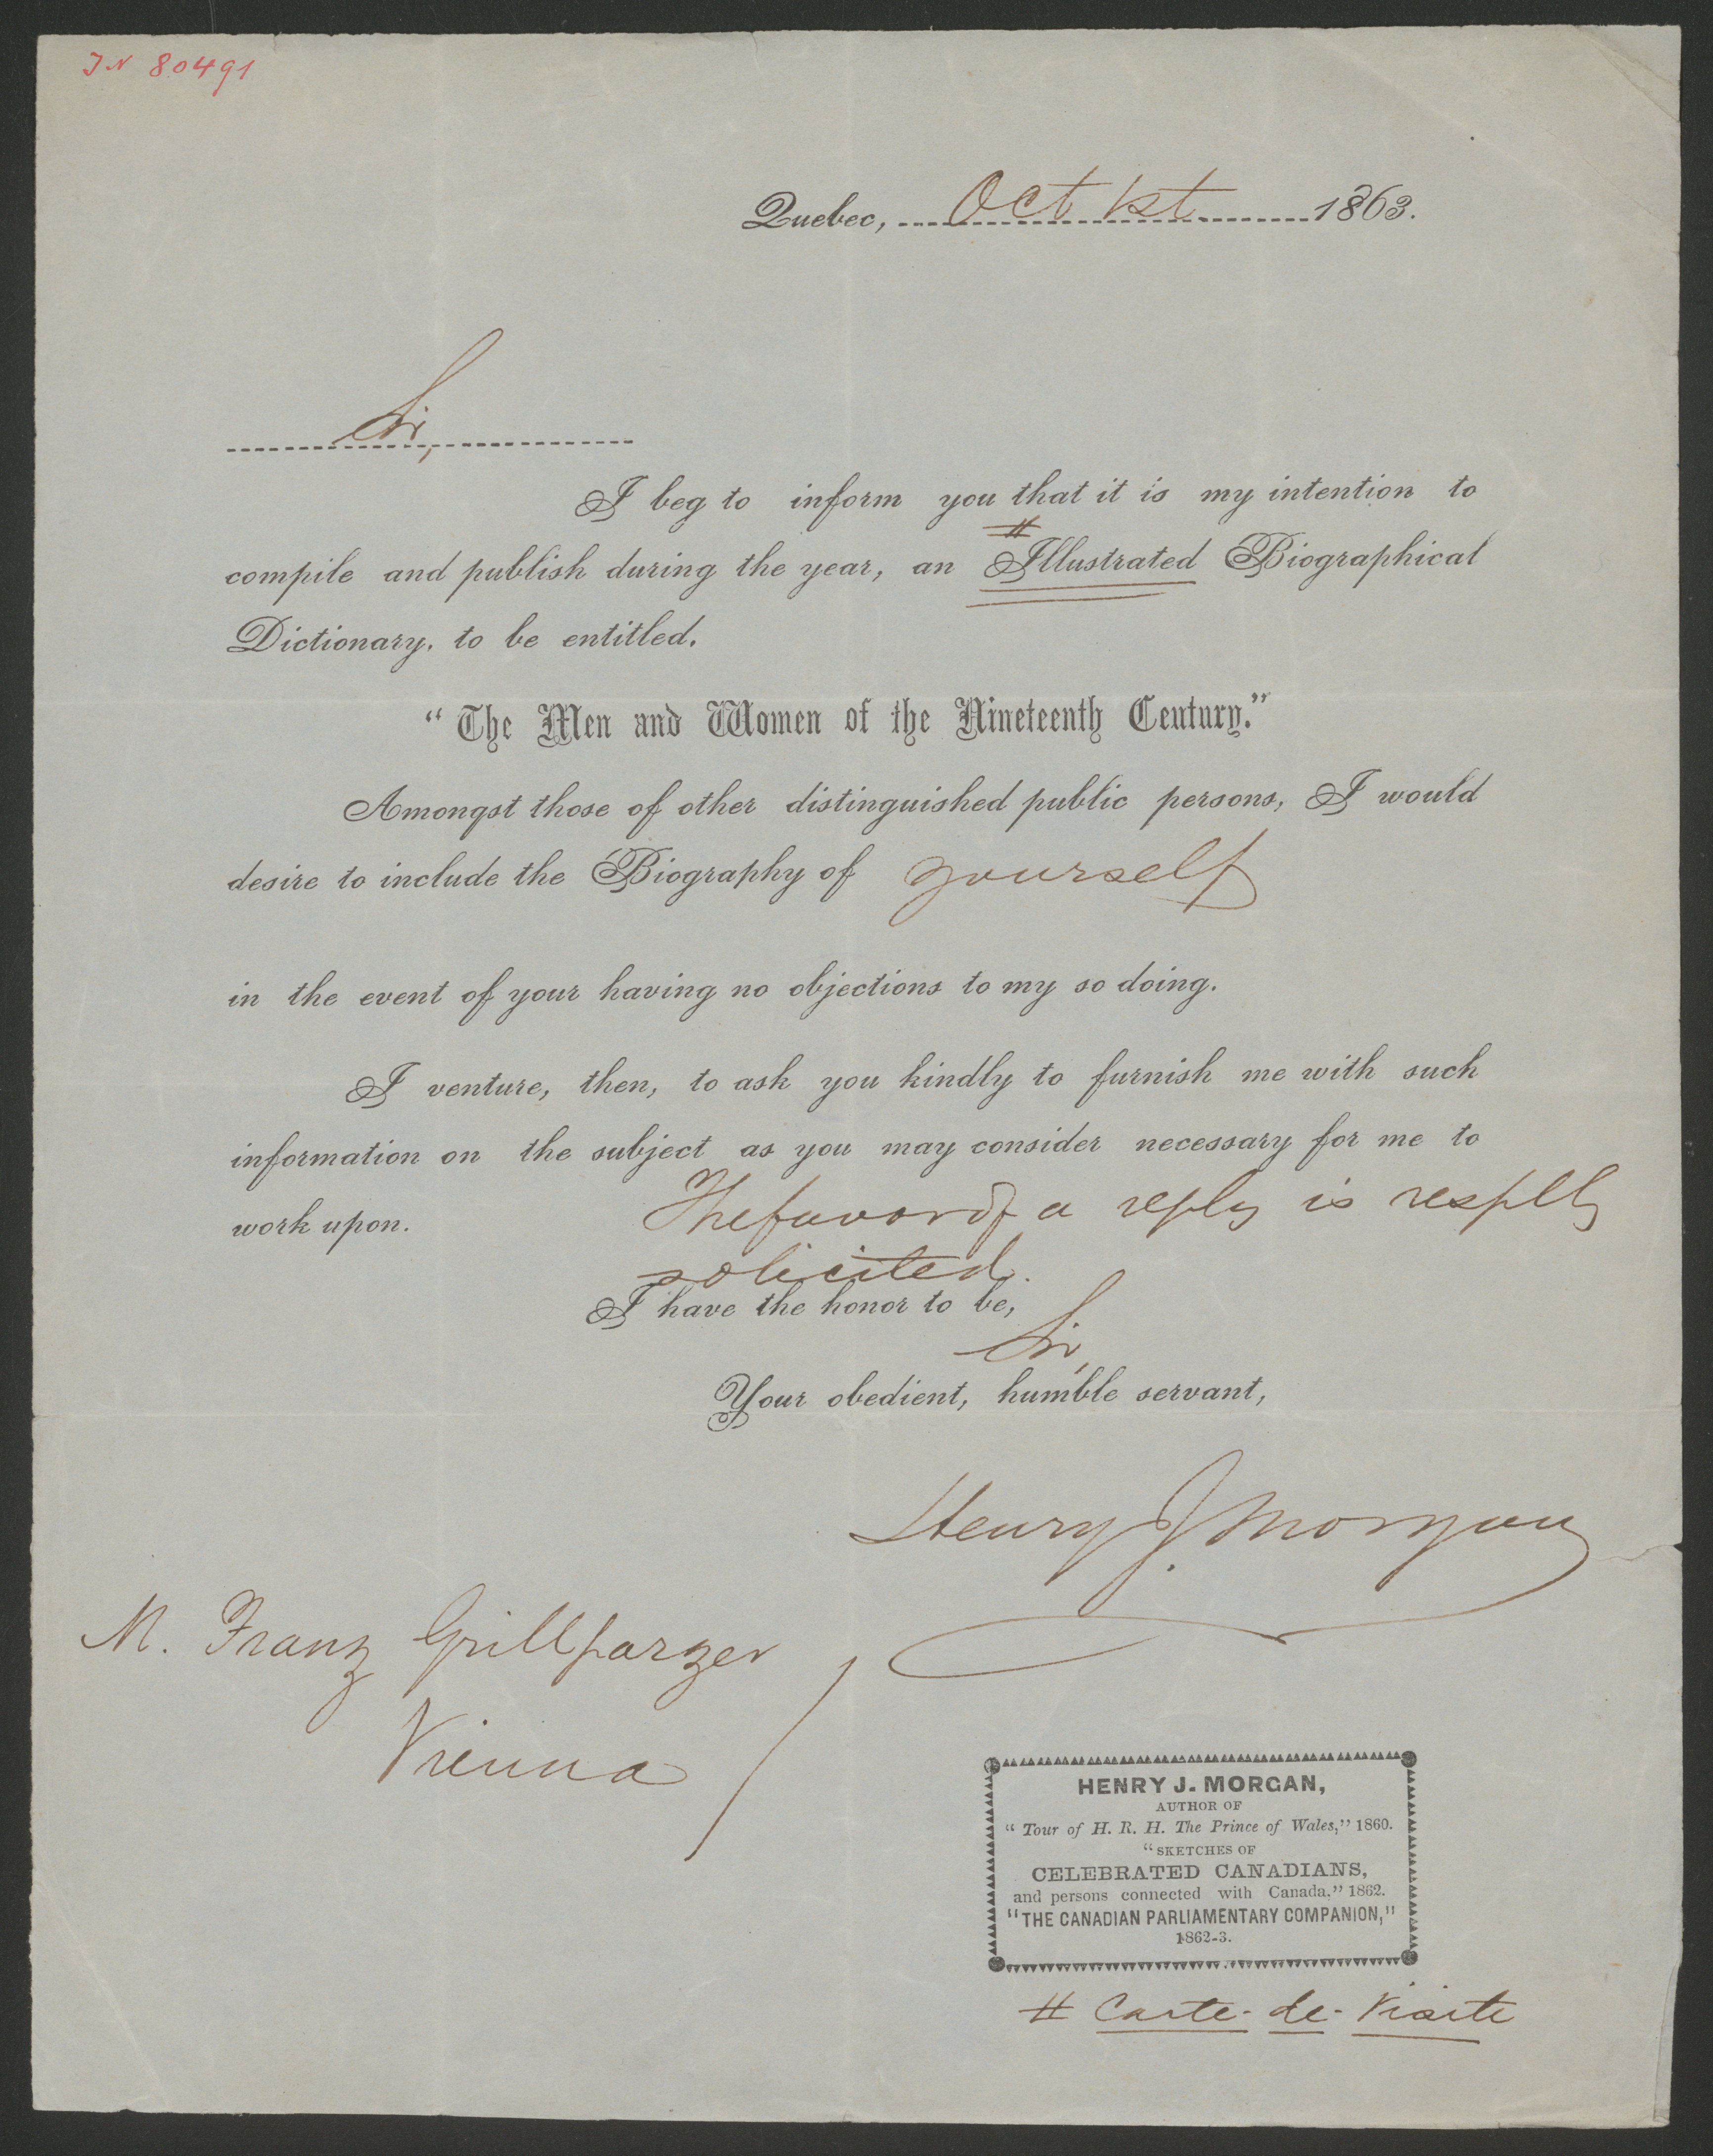 IN 80491
Quebec, Oct 1st 1863.
Sir,
I beg to inform you that it is my intention to
#
compile and publish during the year, an Illustrated Biographical
Dictionary, to be entitled.
“The Men and Women of the Nineteenth Century.”
Amongst those of other distinguished public persons, I would
desire to include the Biography of yourself
in the event of your having no objections to my so doing.
I venture, then, to ask you kindly to furnish me with such
information on the subject as you may consider necessary for me to
work upon. The favor of a reply is respttly
solicited.
I have the honor to be,
Sir,
Your obedient, humble servant,
Henry J. Morgan
M. Franz Grillparzer
Vienna
HENRY J. MORGAN,
AUTHOR OF
“Tour of H. R. H. The Prince of Wales,” 1860.
“SKETCHES OF
CELEBRATED CANADIANS,
and persons connected with Canada.” 1862.
“THE CANADIAN PARLIAMENTARY COMPANION,”
1862-3.
# Carte-de-Visite